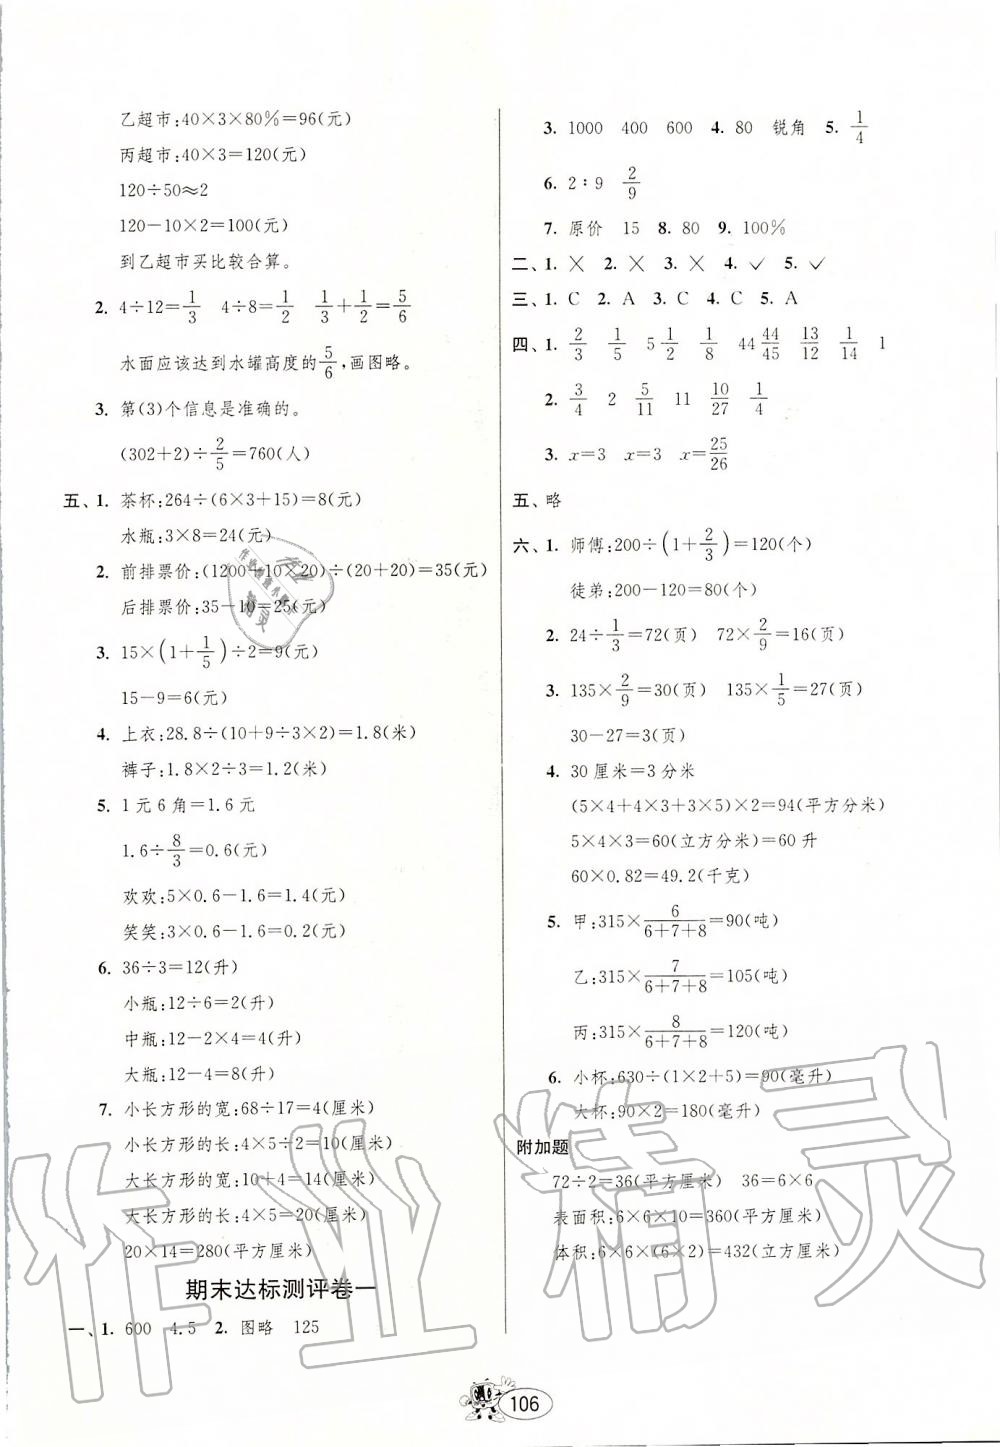 乙超市:40×3×80%=96(元)
丙超市:40×3=120(元)
120÷50≈2
120-10×2=100(元)
到乙超市买比较合算。
2. 4÷12=1/3 4÷8=1/2 1/3+1/2=5/6
水面应该达到水罐高度的5/6,画图略。
3. 第(3)个信息是准确的。
(302+2)÷2/5=760(人)
五、1. 茶杯:264÷(6×3+15)=8(元)
水瓶:3×8=24(元)
2. 前排票价:(1200+10×20)÷(20+20)=35(元)
后排票价:35-10=25(元)
3. 15×(1+1/5)÷2=9(元)
15-9=6(元)
4. 上衣:28.8÷(10+9÷3×2)=1.8(米)
裤子:1.8×2÷3=1.2(米)
5. 1元6角=1.6元
1.6÷8/3=0.6(元)
欢欢:5×0.6-1.6=1.4(元)
笑笑:3×0.6-1.6=0.2(元)
6. 36÷3=12(升)
小瓶:12÷6=2(升)
中瓶:12-2×4=4(升)
大瓶:12-4=8(升)
7. 小长方形的宽:68÷17=4(厘米)
小长方形的长:4×5÷2=10(厘米)
大长方形的宽:10+4=14(厘米)
大长方形的长:4×5=20(厘米)
20×14=280(平方厘米)
期末达标测评卷一
一、1. 600 4.5 2. 图略 125
3. 1000 400 600 4. 80 锐角 5. 1/4
6. 2∶9 2/9
7. 原价 15 8. 80 9. 100%
二、1. × 2. × 3. × 4. ✓ 5. ✓
三、1. C 2. A 3. C 4. C 5. A
四、1. 2/3 1/5 5 1/2 1/8 44 44/45 13/12 1/14 1
2. 3/4 2 5/11 11 10/27 1/4
3. x=3 x=3 x=25/26
五、略
六、1. 师傅:200÷(1+2/3)=120(个)
徒弟:200-120=80(个)
2. 24÷1/3=72(页) 72×2/9=16(页)
3. 135×2/9=30(页) 135×1/5=27(页)
30-27=3(页)
4. 30厘米=3分米
(5×4+4×3+3×5)×2=94(平方分米)
5×4×3=60(立方分米)=60升
60×0.82=49.2(千克)
5. 甲:315×6/(6+7+8)=90(吨)
乙:315×7/(6+7+8)=105(吨)
丙:315×8/(6+7+8)=120(吨)
6. 小杯:630÷(1×2+5)=90(毫升)
大杯:90×2=180(毫升)
附加题
72÷2=36(平方厘米) 36=6×6
表面积:6×6×10=360(平方厘米)
体积:6×6×(6×2)=432(立方厘米)
106
作业精灵